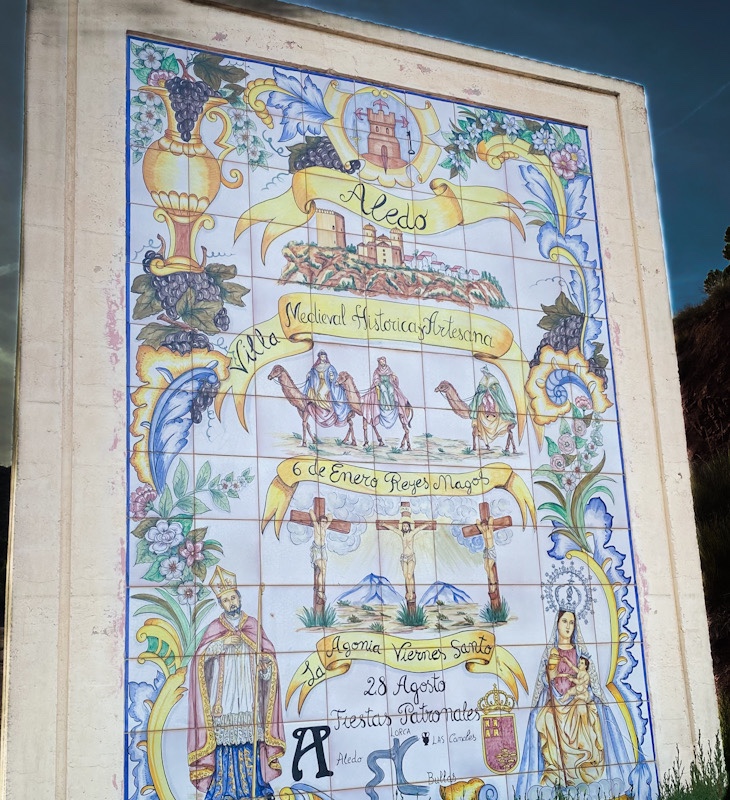 Aledo
Villa Medieval Historica y Artesana
6 de Enero Reyes Magos
La Agonia Viernes Santo
28 Agosto
Fiestas Patronales
A
LORCA
Aledo
LAS Canales
Bullas